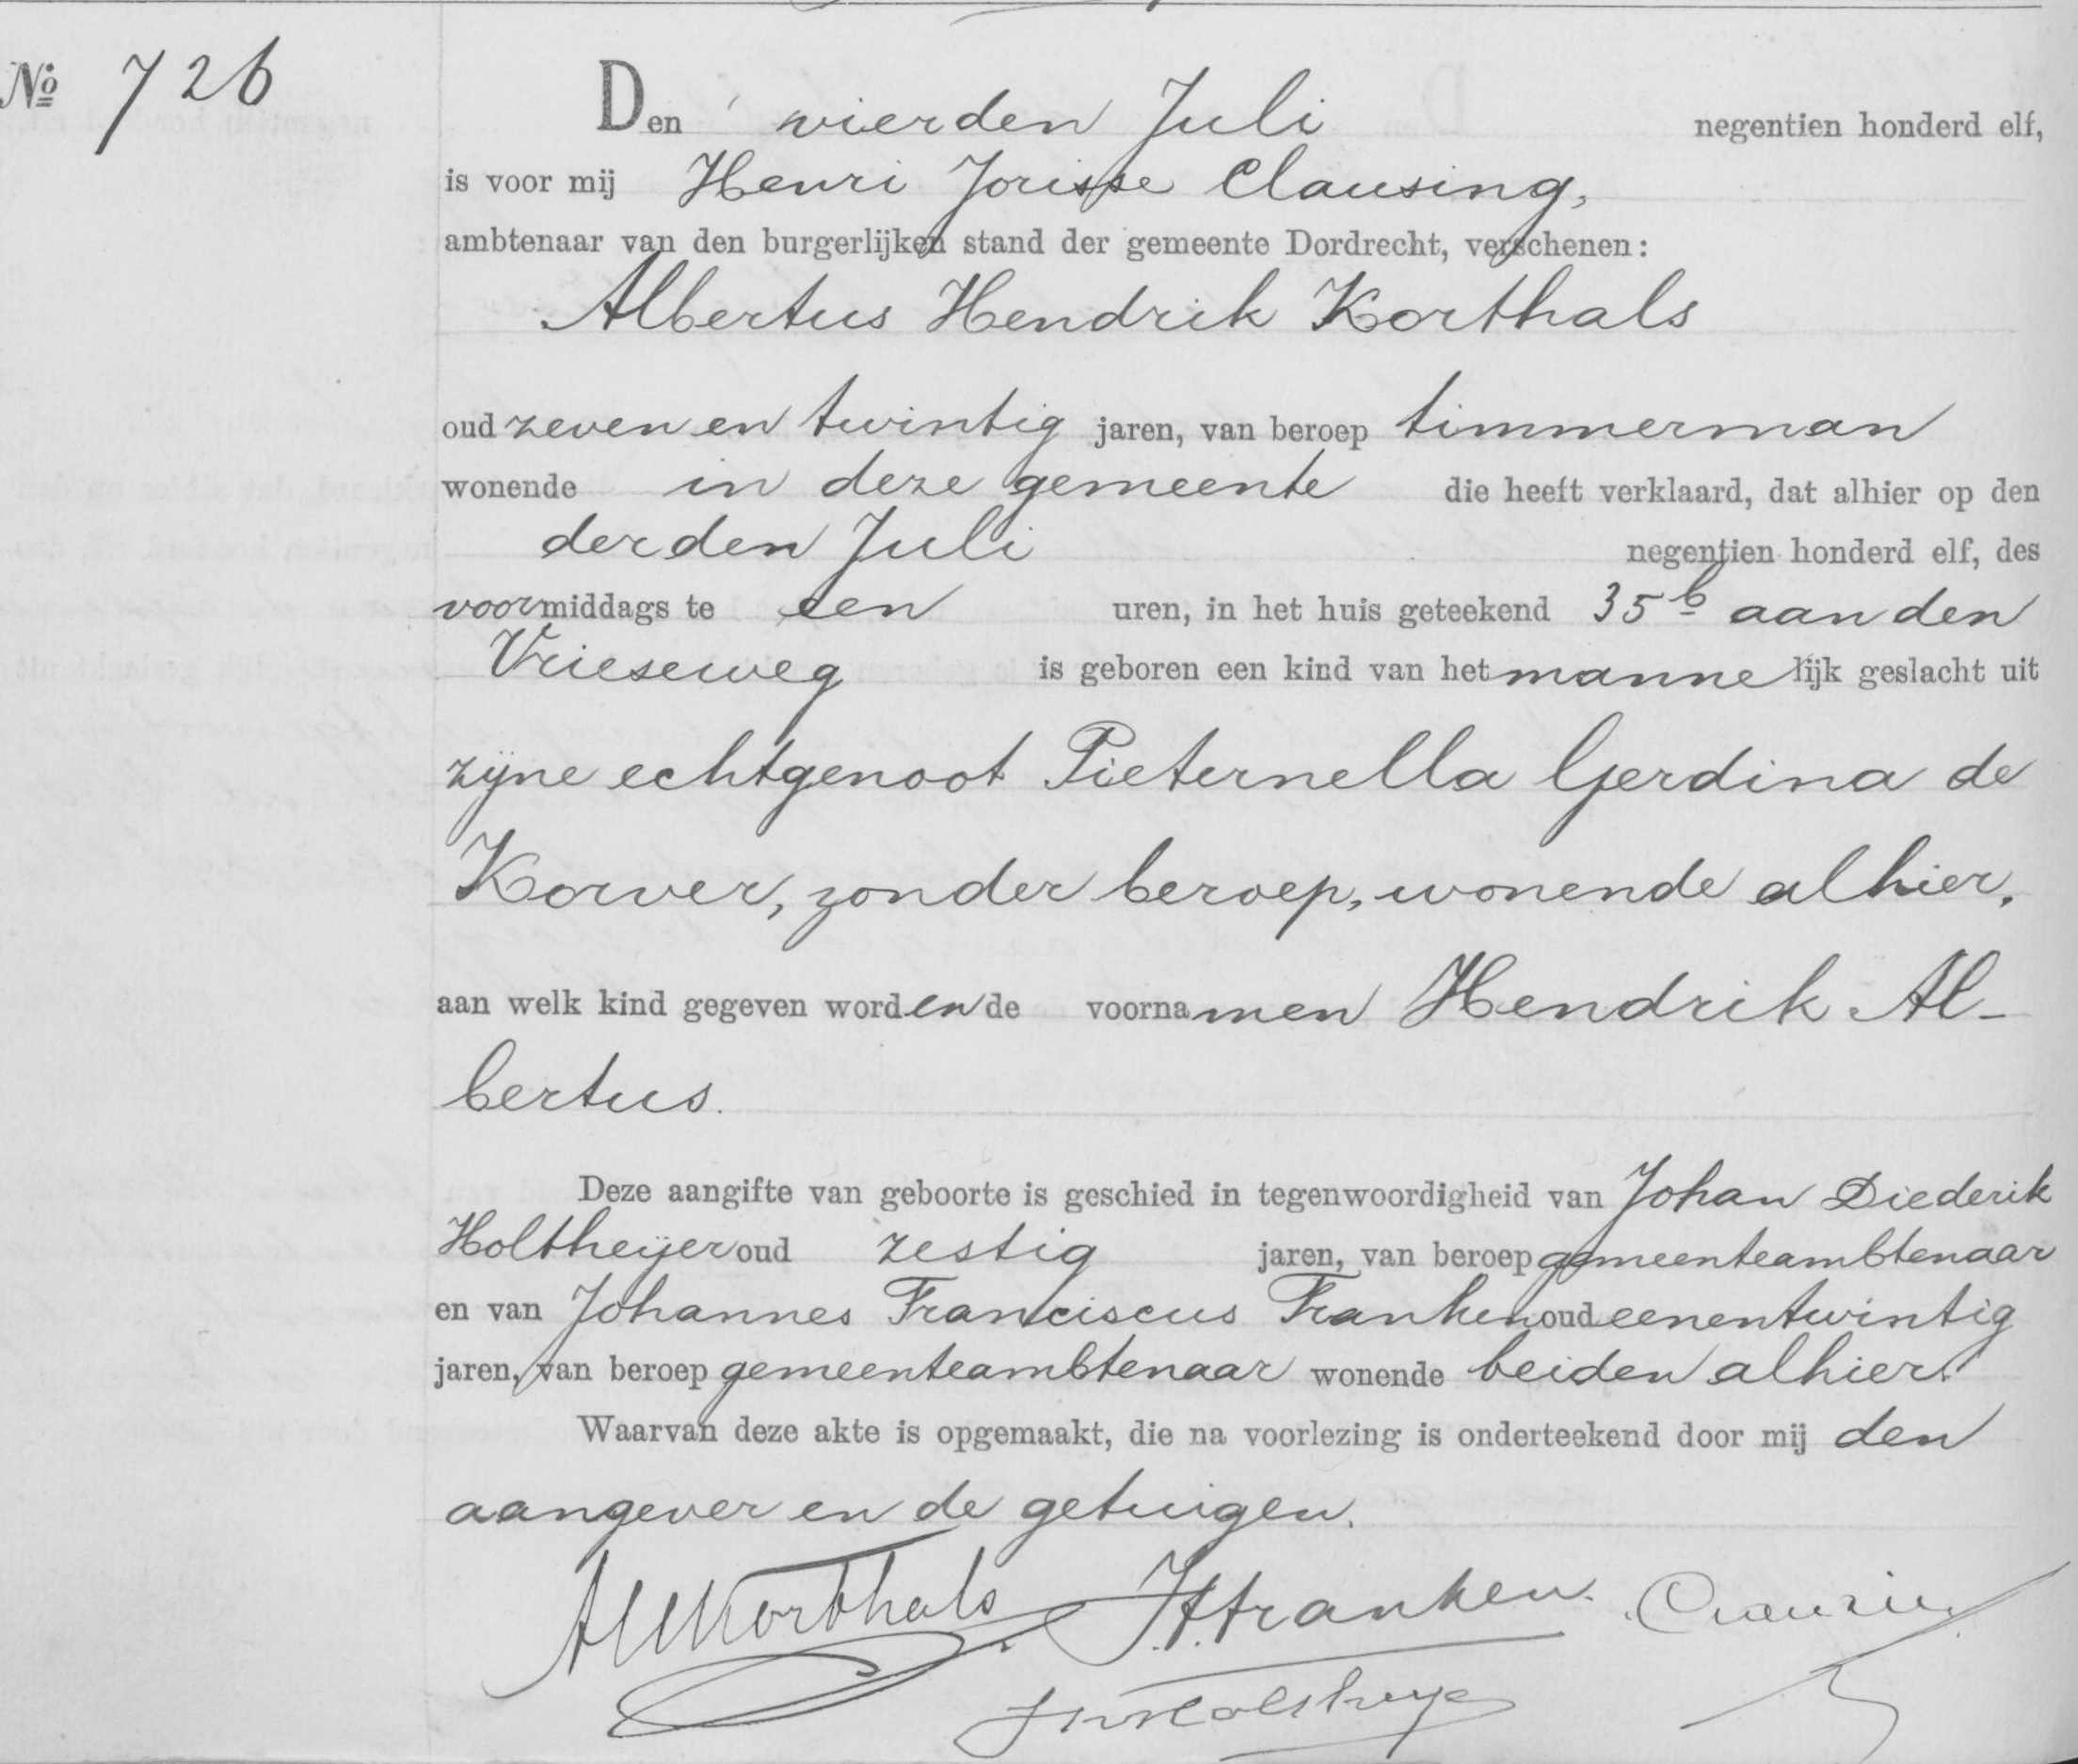 No 726
Den vierden Juli negentien honderd elf,
is voor mij Henri Jorisse Clausing,
ambtenaar van den burgerlijken stand der gemeente Dordrecht, verschenen:
Albertus Hendrik Korthals
oud zeven en twintig jaren, van beroep timmerman
wonende in deze gemeente die heeft verklaard, dat alhier op den
derden Juli negentien honderd elf, des
voormiddags te een uren, in het huis geteekend 35b aan den
Vrieseweg is geboren een kind van het mannelijk geslacht uit
zijne echtgenoot Pieternella Gerdina de
Korver, zonder beroep, wonende alhier,
aan welk kind gegeven worden de voornamen Hendrik Al-
bertus.
Deze aangifte van geboorte is geschied in tegenwoordigheid van Johan Diederik
Holtheijer oud zestig jaren, van beroep gemeenteambtenaar
en van Johannes Franciscus Franken oud eenentwintig
jaren, van beroep gemeenteambtenaar wonende beiden alhier.
Waarvan deze akte is opgemaakt, die na voorlezing is onderteekend door mij den
aangever en de getuigen.
AHKorthals JFFranken. Clausing
JDHoltheyer